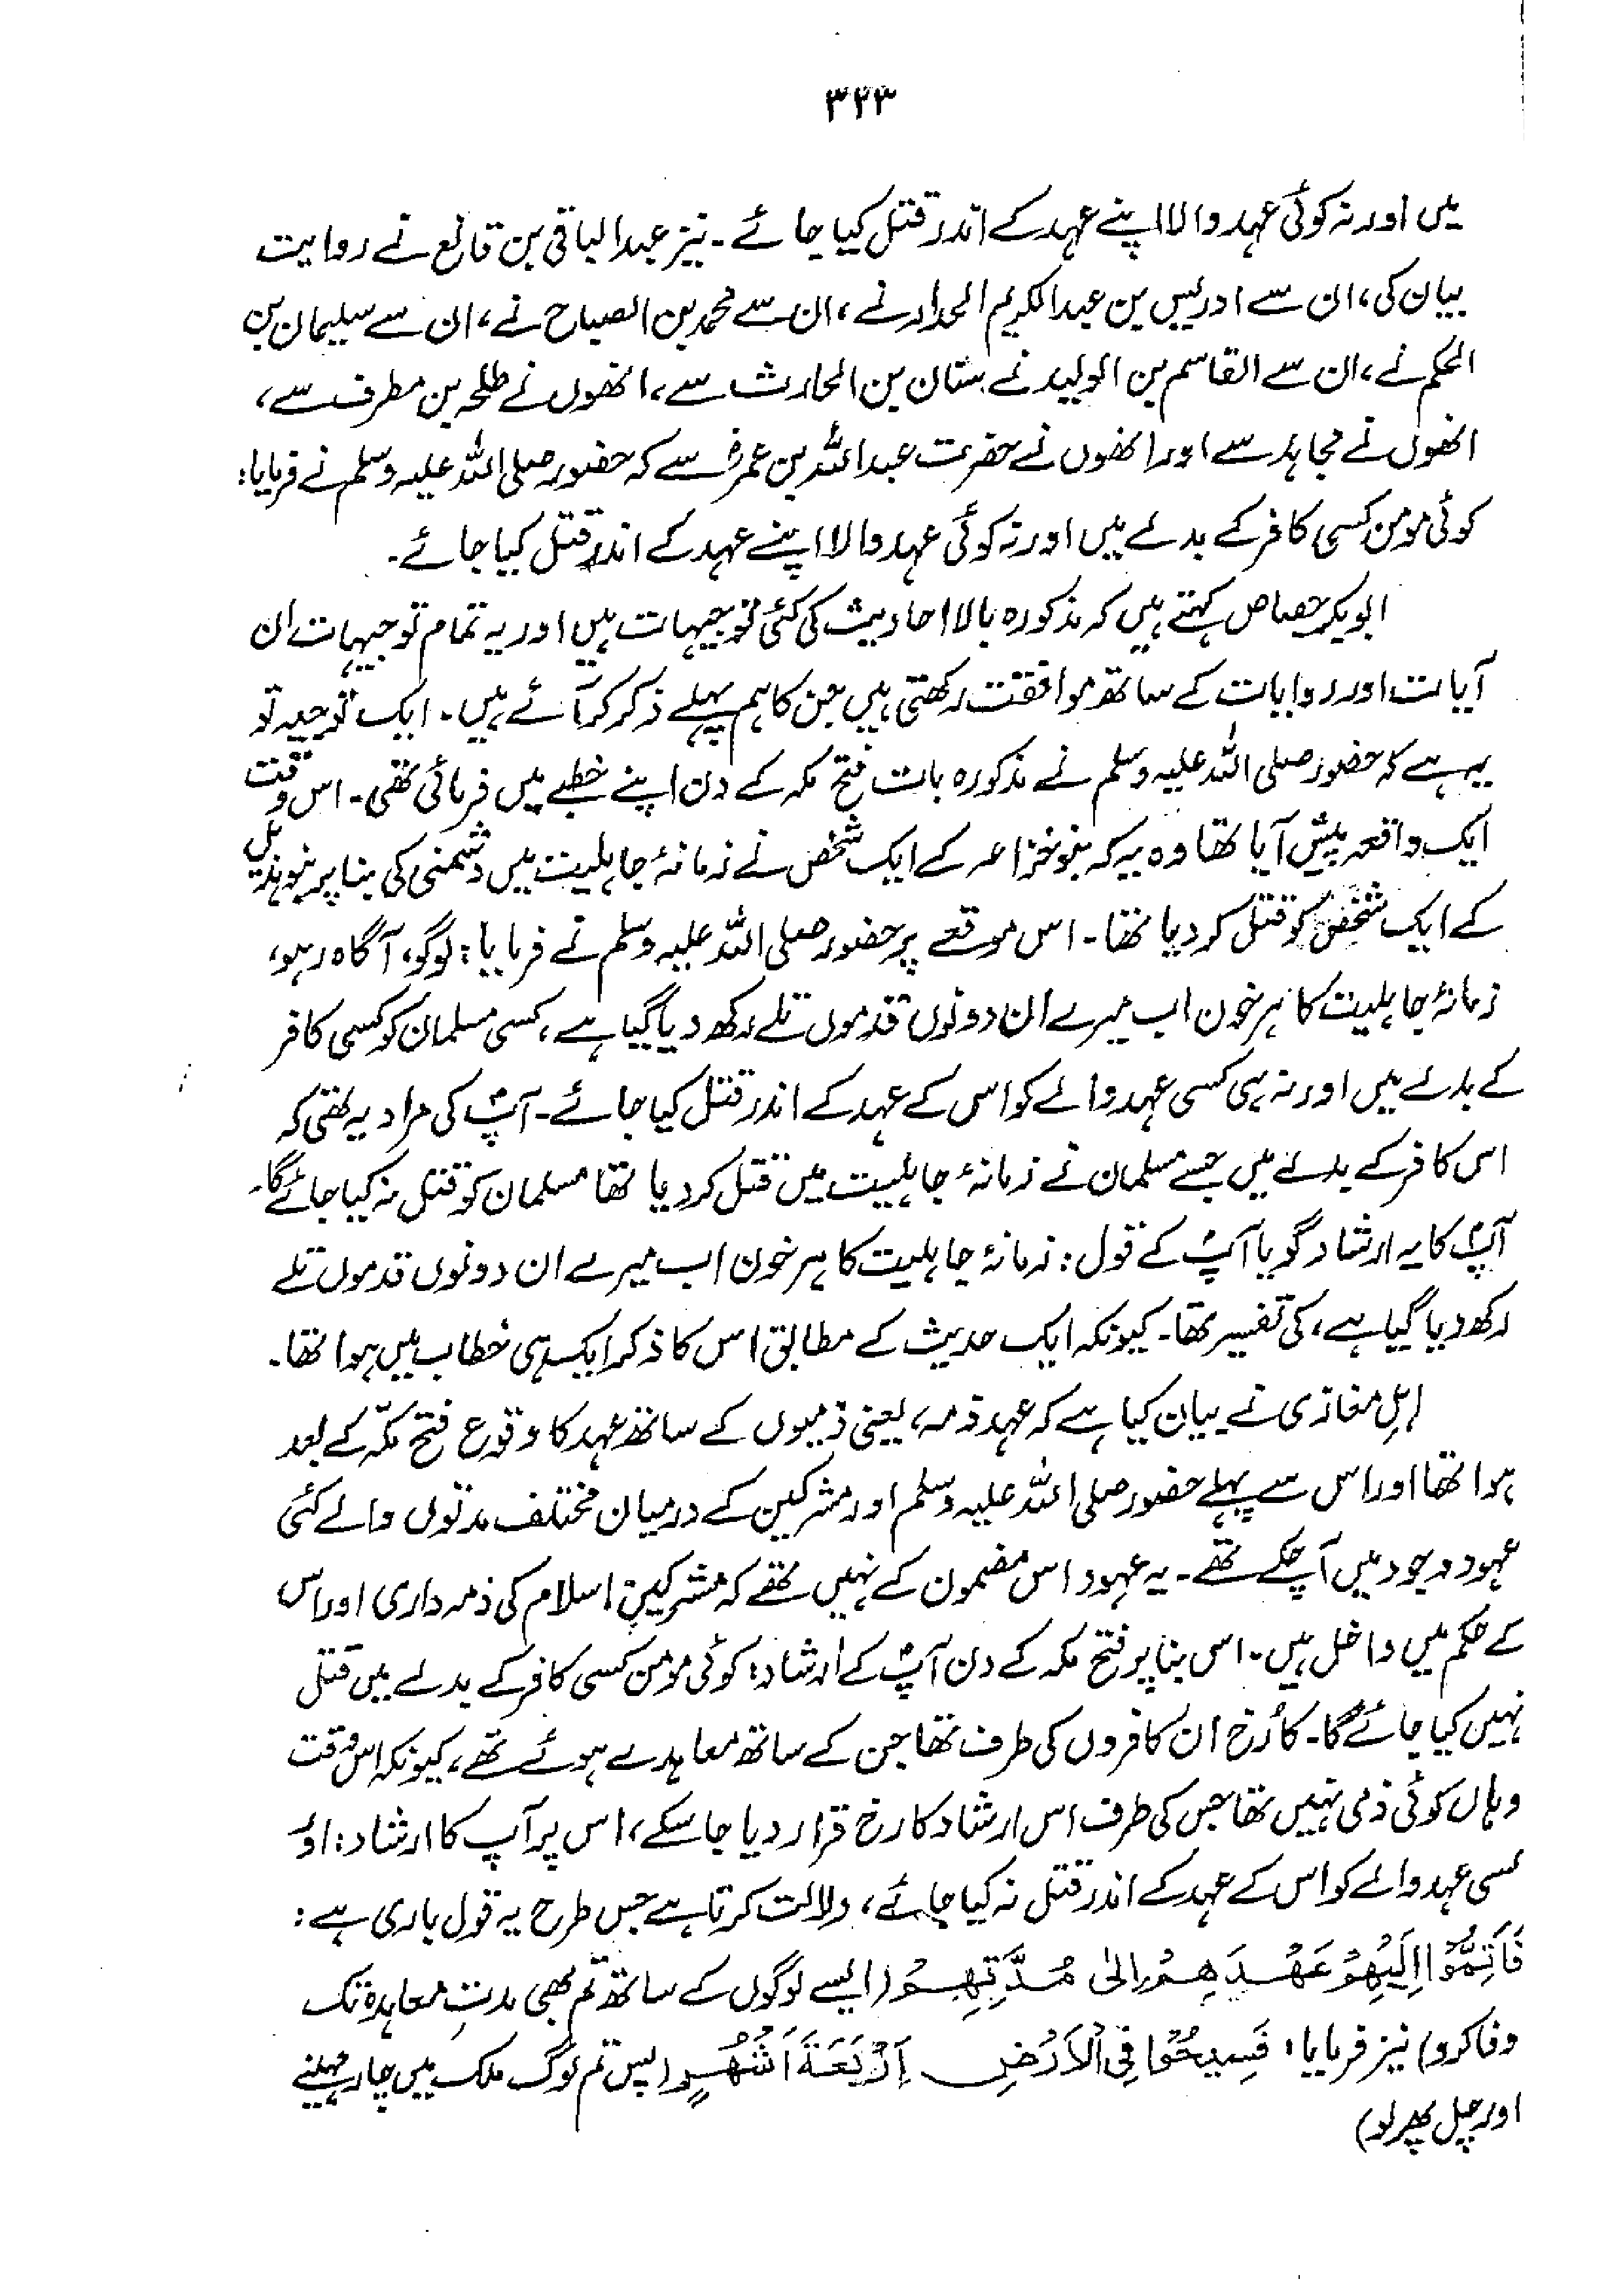 ۳۲۳
میں اور نہ کوئی عہد والا اپنے عہد کے اندر قتل کیا جائے۔ نیز عبدالباقی بن قانع نے روایت
بیان کی، ان سے ادریس بن عبدالکریم الحداد نے، ان سے محمد بن الصباح نے، ان سے سلیمان بن
الحکم نے، ان سے القاسم بن الولید نے سنان بن الحارث سے، انھوں نے طلحہ بن مطرف سے،
انھوں نے مجاہد سے اور انھوں نے حضرت عبداللہ بن عمرؓ سے کہ حضور صلی اللہ علیہ وسلم نے فرمایا:
کوئی مومن کسی کافر کے بدلے میں اور نہ کوئی عہد والا اپنے عہد کے اندر قتل کیا جائے۔
ابوبکر جصاص کہتے ہیں کہ مذکورہ بالا احادیث کی کئی توجیہات ہیں اور یہ تمام توجیہات ان
آیات اور روایات کے ساتھ موافقت رکھتی ہیں جن کا ہم پہلے ذکر کر آئے ہیں۔ ایک توجیہ تو
یہ ہے کہ حضور صلی اللہ علیہ وسلم نے مذکورہ بات فتح مکہ کے دن اپنے خطبے میں فرمائی تھی۔ اس وقت
ایک واقعہ پیش آیا تھا وہ یہ کہ بنو خزاعہ کے ایک شخص نے زمانۂ جاہلیت میں دشمنی کی بنا پر بنو ہذیل
کے ایک شخص کو قتل کر دیا تھا۔ اس موقعے پر حضور صلی اللہ علیہ وسلم نے فرمایا: لوگو، آگاہ رہو،
زمانۂ جاہلیت کا ہر خون اب میرے ان دونوں قدموں تلے رکھ دیا گیا ہے، کسی مسلمان کو کسی کافر
کے بدلے میں اور نہ ہی کسی عہد والے کو اس کے عہد کے اندر قتل کیا جائے۔ آپؐ کی مراد یہ تھی کہ
اس کافر کے بدلے میں جسے مسلمان نے زمانۂ جاہلیت میں قتل کر دیا تھا مسلمان کو قتل نہ کیا جائے گا۔
آپؐ کا یہ ارشاد گویا آپؐ کے قول: زمانۂ جاہلیت کا ہر خون اب میرے ان دونوں قدموں تلے
رکھ دیا گیا ہے، کی تفسیر تھا۔ کیونکہ ایک حدیث کے مطابق اس کا ذکر ایک ہی خطاب میں ہوا تھا۔
اہلِ مغازی نے بیان کیا ہے کہ عہد ذمہ، یعنی ذمیوں کے ساتھ عہد کا وقوع فتح مکّہ کے بعد
ہوا تھا اور اس سے پہلے حضور صلی اللہ علیہ وسلم اور مشرکین کے درمیان مختلف مدتوں والے کئی
عہود وجود میں آ چکے تھے۔ یہ عہود اس مضمون کے نہیں تھے کہ مشرکین اسلام کی ذمہ داری اور اس
کے حکم میں داخل ہیں۔ اس بنا پر فتح مکہ کے دن آپؐ کے ارشاد: کوئی مومن کسی کافر کے بدلے میں قتل
نہیں کیا جائے گا۔ کا رُخ ان کافروں کی طرف تھا جن کے ساتھ معاہدے ہوئے تھے، کیونکہ اس وقت
وہاں کوئی ذمی نہیں تھا جس کی طرف اس ارشاد کا رخ قرار دیا جا سکے، اس پر آپ کا ارشاد: اور
کسی عہد والے کو اس کے عہد کے اندر قتل نہ کیا جائے، دلالت کرتا ہے جس طرح یہ قول باری ہے:
فَاَتِمُّوْا اِلَیْهِمْ عَهْدَهِمْ اِلٰی مُدَّتِهِمْ (ایسے لوگوں کے ساتھ تم بھی مدتِ معاہدہ تک
وفا کرو) نیز فرمایا: فَسِیْحُوْا فِی الْاَرْضِ اَرْبَعَةَ اَشْهُرٍ (پس تم لوگ ملک میں چار مہینے
اور چل پھر لو)